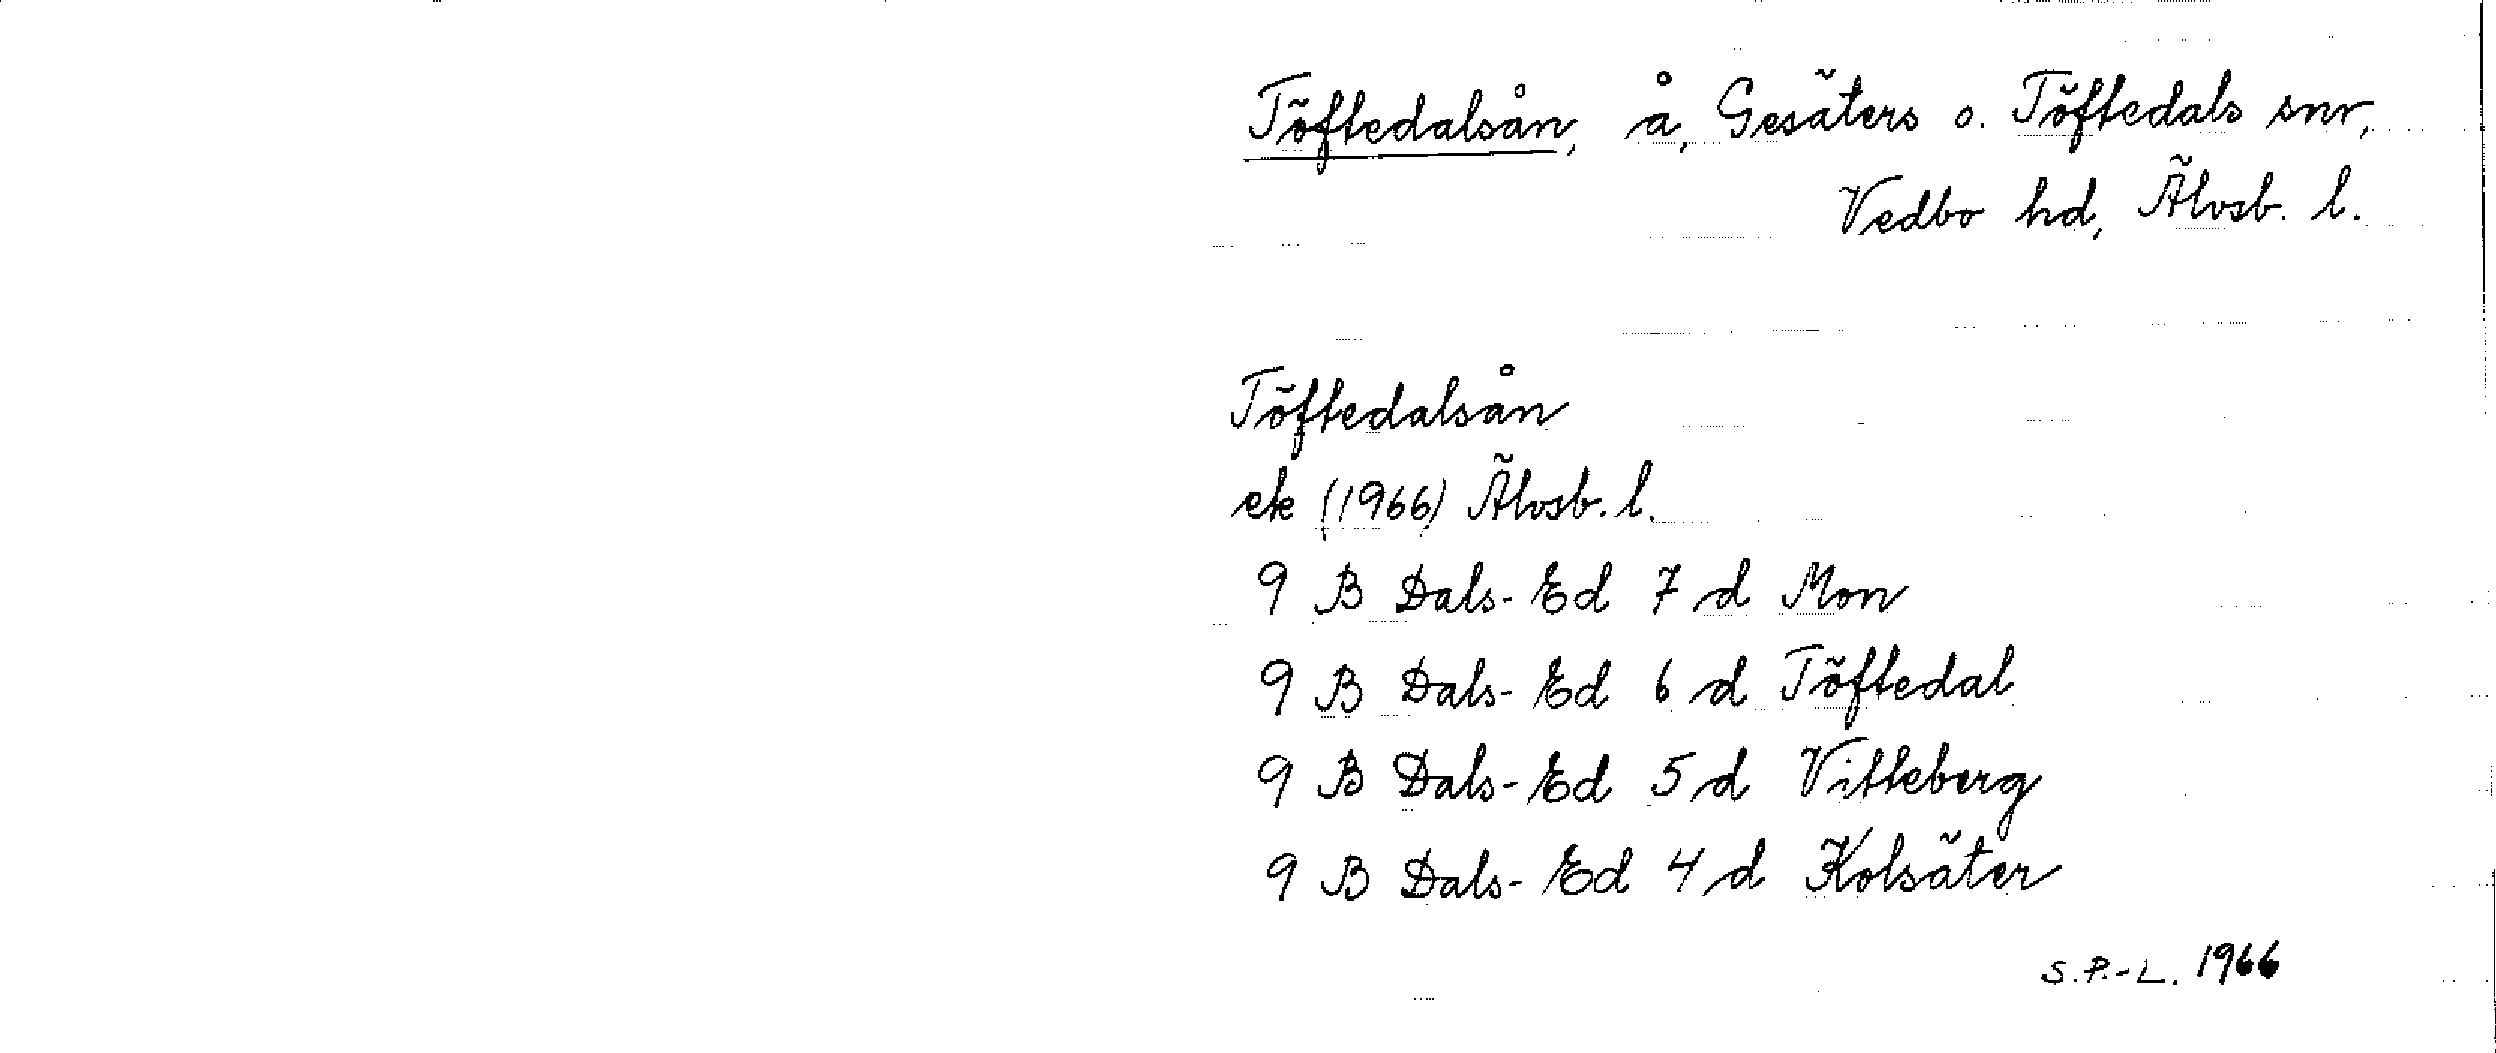 Töftedalsån, å, Gesäters o. Töftedals snr,
Vedbo hd, Älvsb. l.
Töftedalsån
ek (1966) Älvsb. l.
9 B Dals-Ed 7 d Mon
9 B Dals-Ed 6 d Töftedal
9 B Dals-Ed 5 d Vitteberg
9 B Dals-Ed 4 d Kolsäter
S.P.-L. 1966